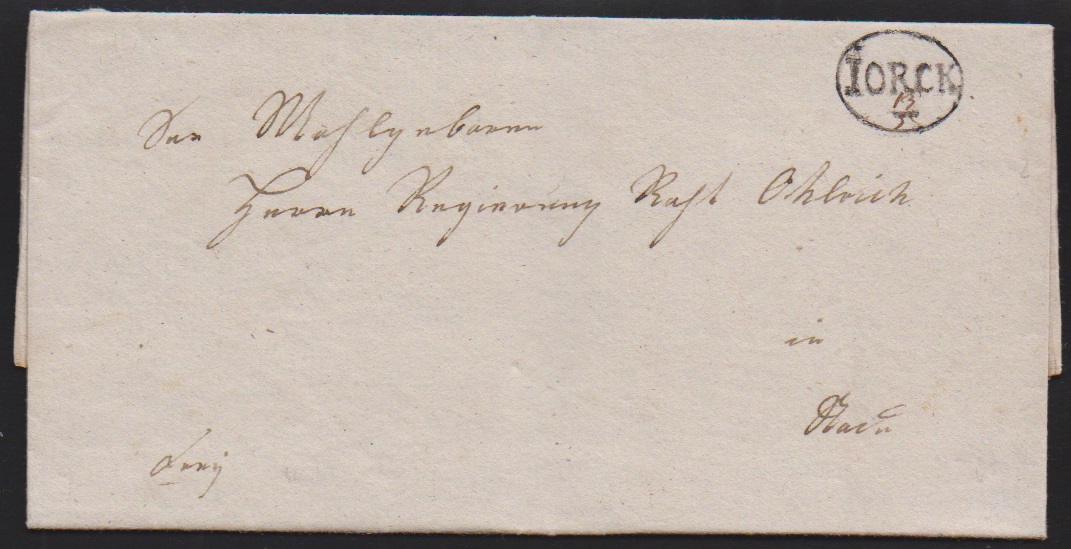 IORCK
13/5
Der Wohlgeboren
Herrn Regierung Raht Ohlrich
in
Stade
frey